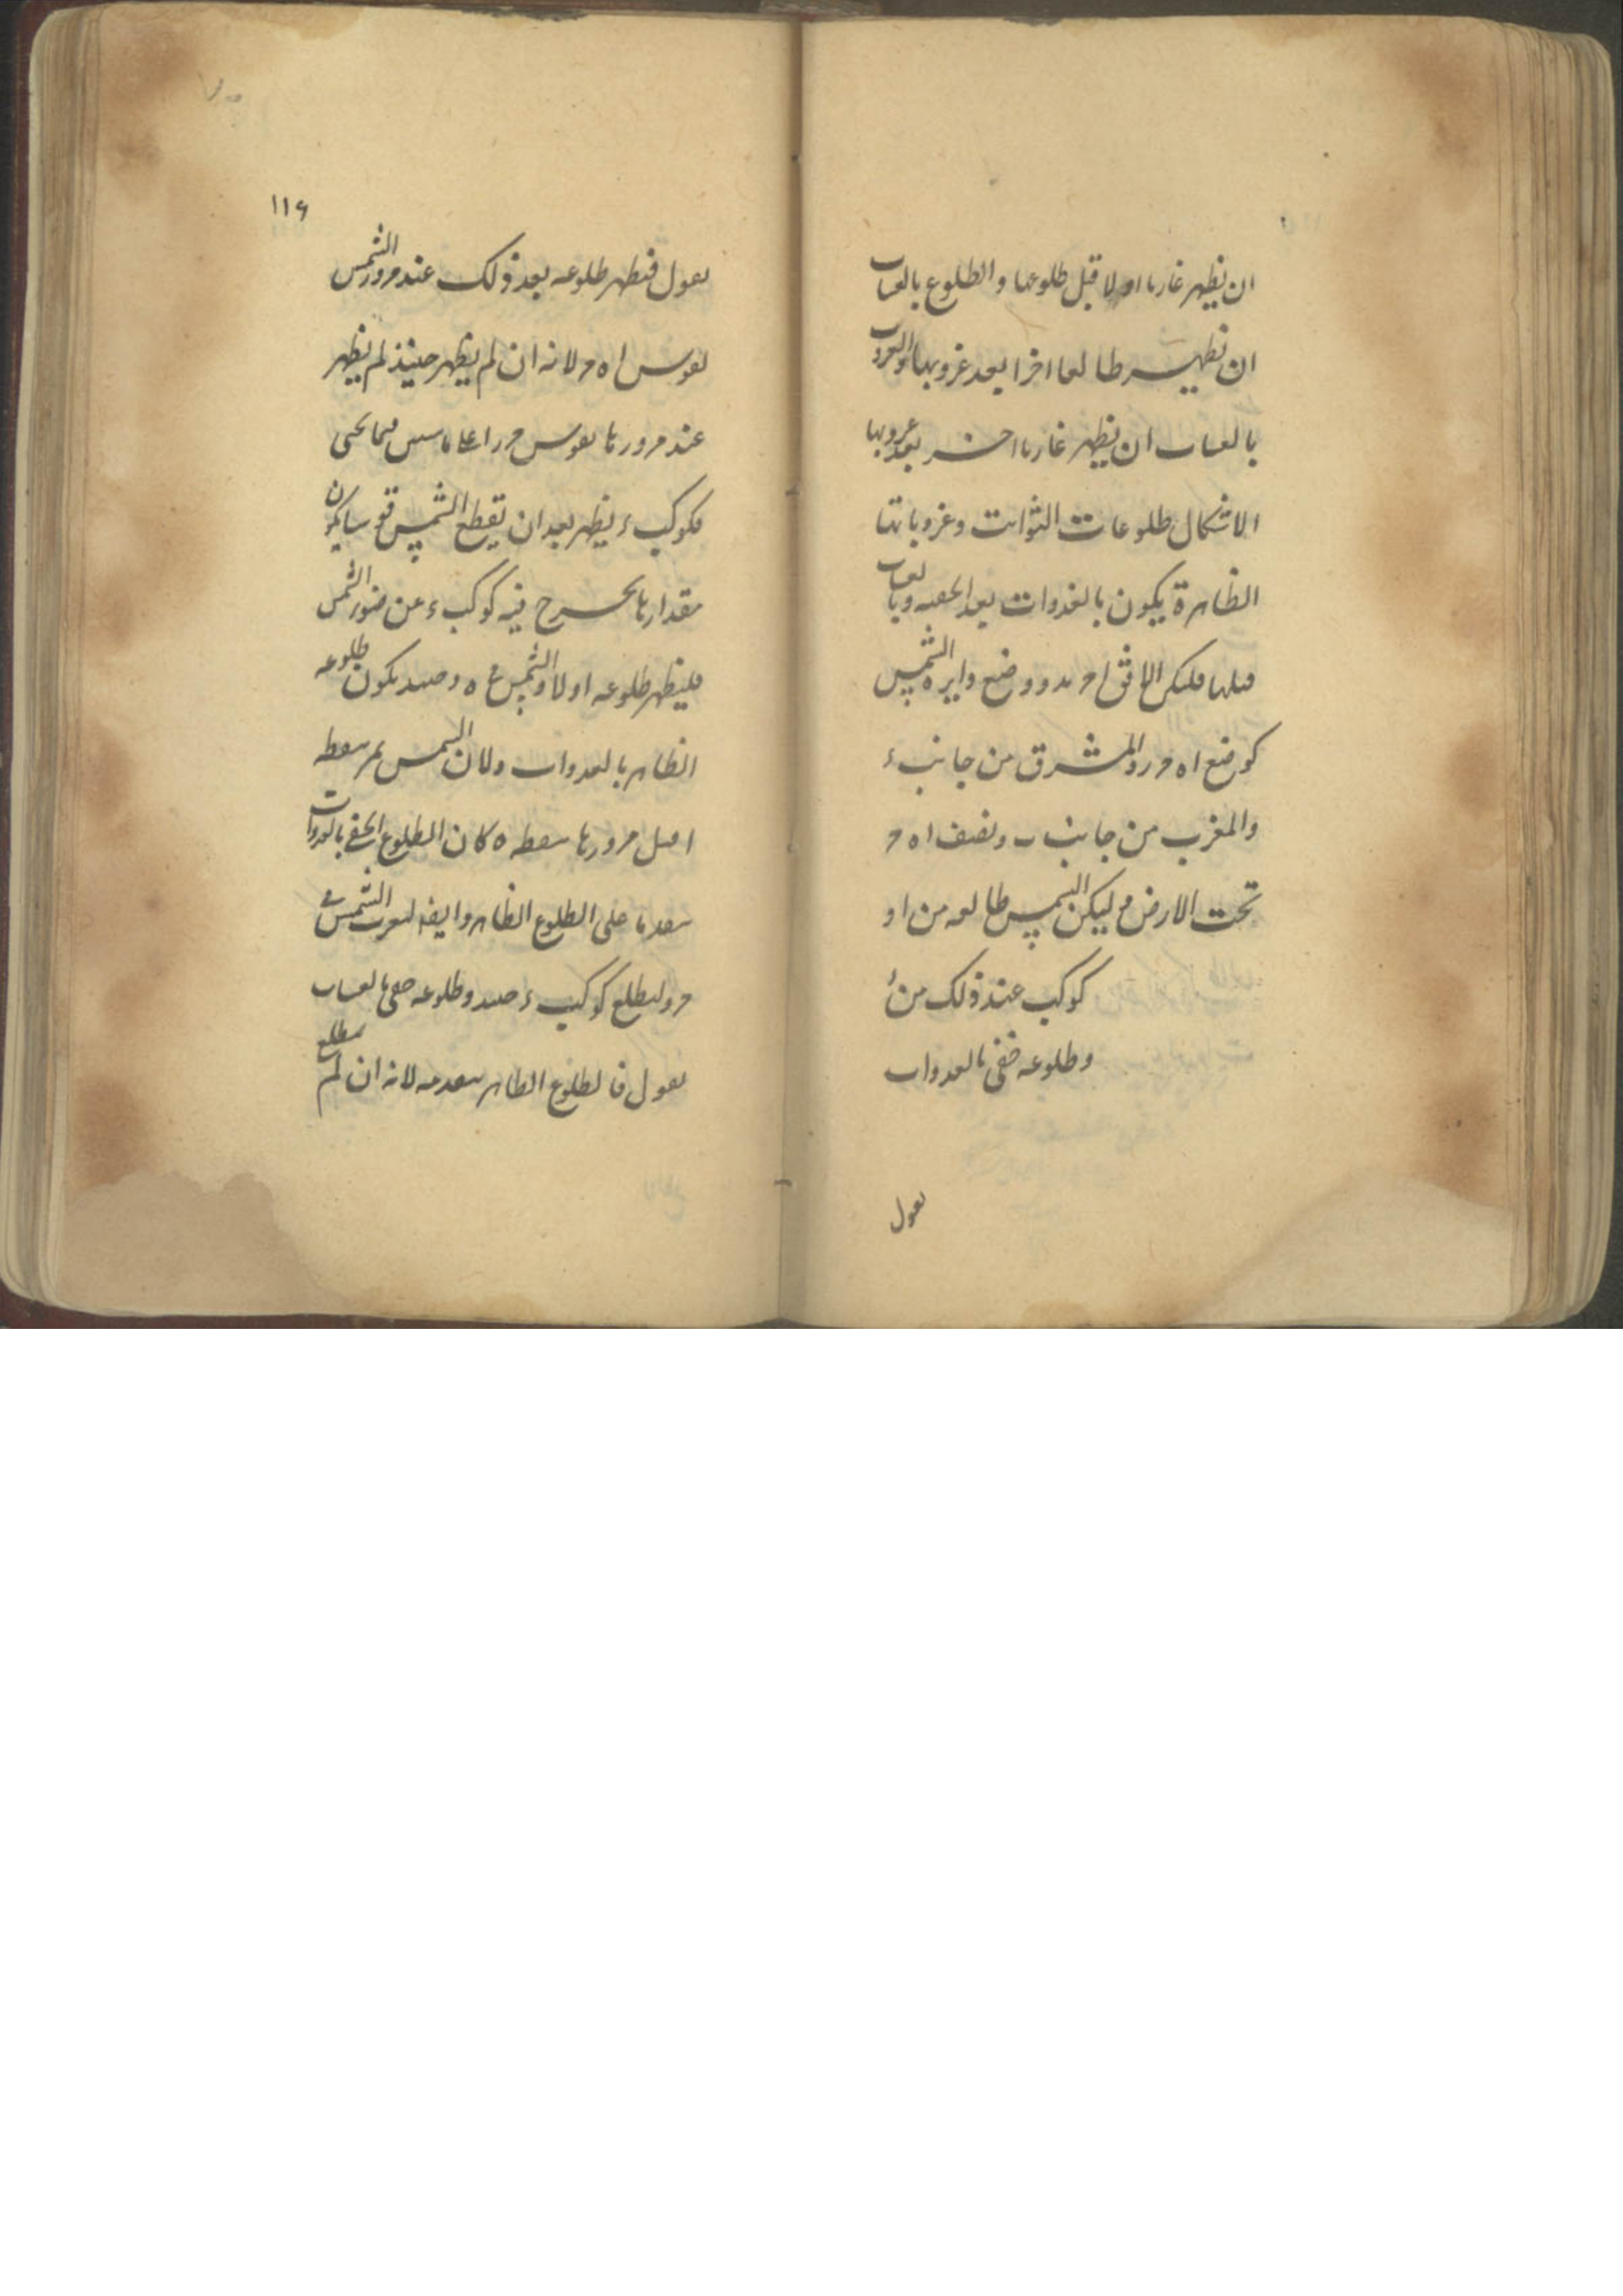 ان يظهر غاربا اولا قبل طلوعها والطلوع بالعشيات
ان يظهر طالعا اخرا بعد غروبها والغروب
بالعشيات ان يظهر غاربا اخرا بعد غروبها
الاشكال طلوعات الثوابت وغروباتها
الظاهرة يكون بالغدوات بعد الخفية وبالعشيات
قبلها فليكن الافق ا ح ب د ووضع دايره الشمس
كوضع ا ه ح ر والمشرق من جانب ء
والمغرب من جانب ب ونصف ا ه ح
تحت الارض وليكن الشمس طالعه من ا و
كوكب عند ذلك من ء
وطلوعه خفى بالغدوات
نقول
١١٦
نقول فيظهر طلوعه بعد ذلك عند مرور الشمس
بقوس ا ه ح لانه ان لم يظهر حينئذ لم يظهر
عند مرورها بقوس ح ر ا على ما سيس فيما يحيى
فكوكب ء يظهر بعد ان يقطع الشمس قوسا يكون
مقدارها يخرج فيه كوكب ء عن ضوء الشمس
فليظهر طلوعه اولا والشمس على ه وحينئذ يكون طلوعه
الظاهر بالغدوات ولان الشمس يمر بنقطه
ا قبل مرورها بنقطه ه كان الطلوع الخفى بالغدوات
متقدما على الطلوع الظاهر وايضا لتغرب الشمس فى
ح وليطلع كوكب ء حينئذ وطلوعه خفى بالعشيات
نقول فالطلوع الظاهر يتقدمه لانه ان لم يطلع